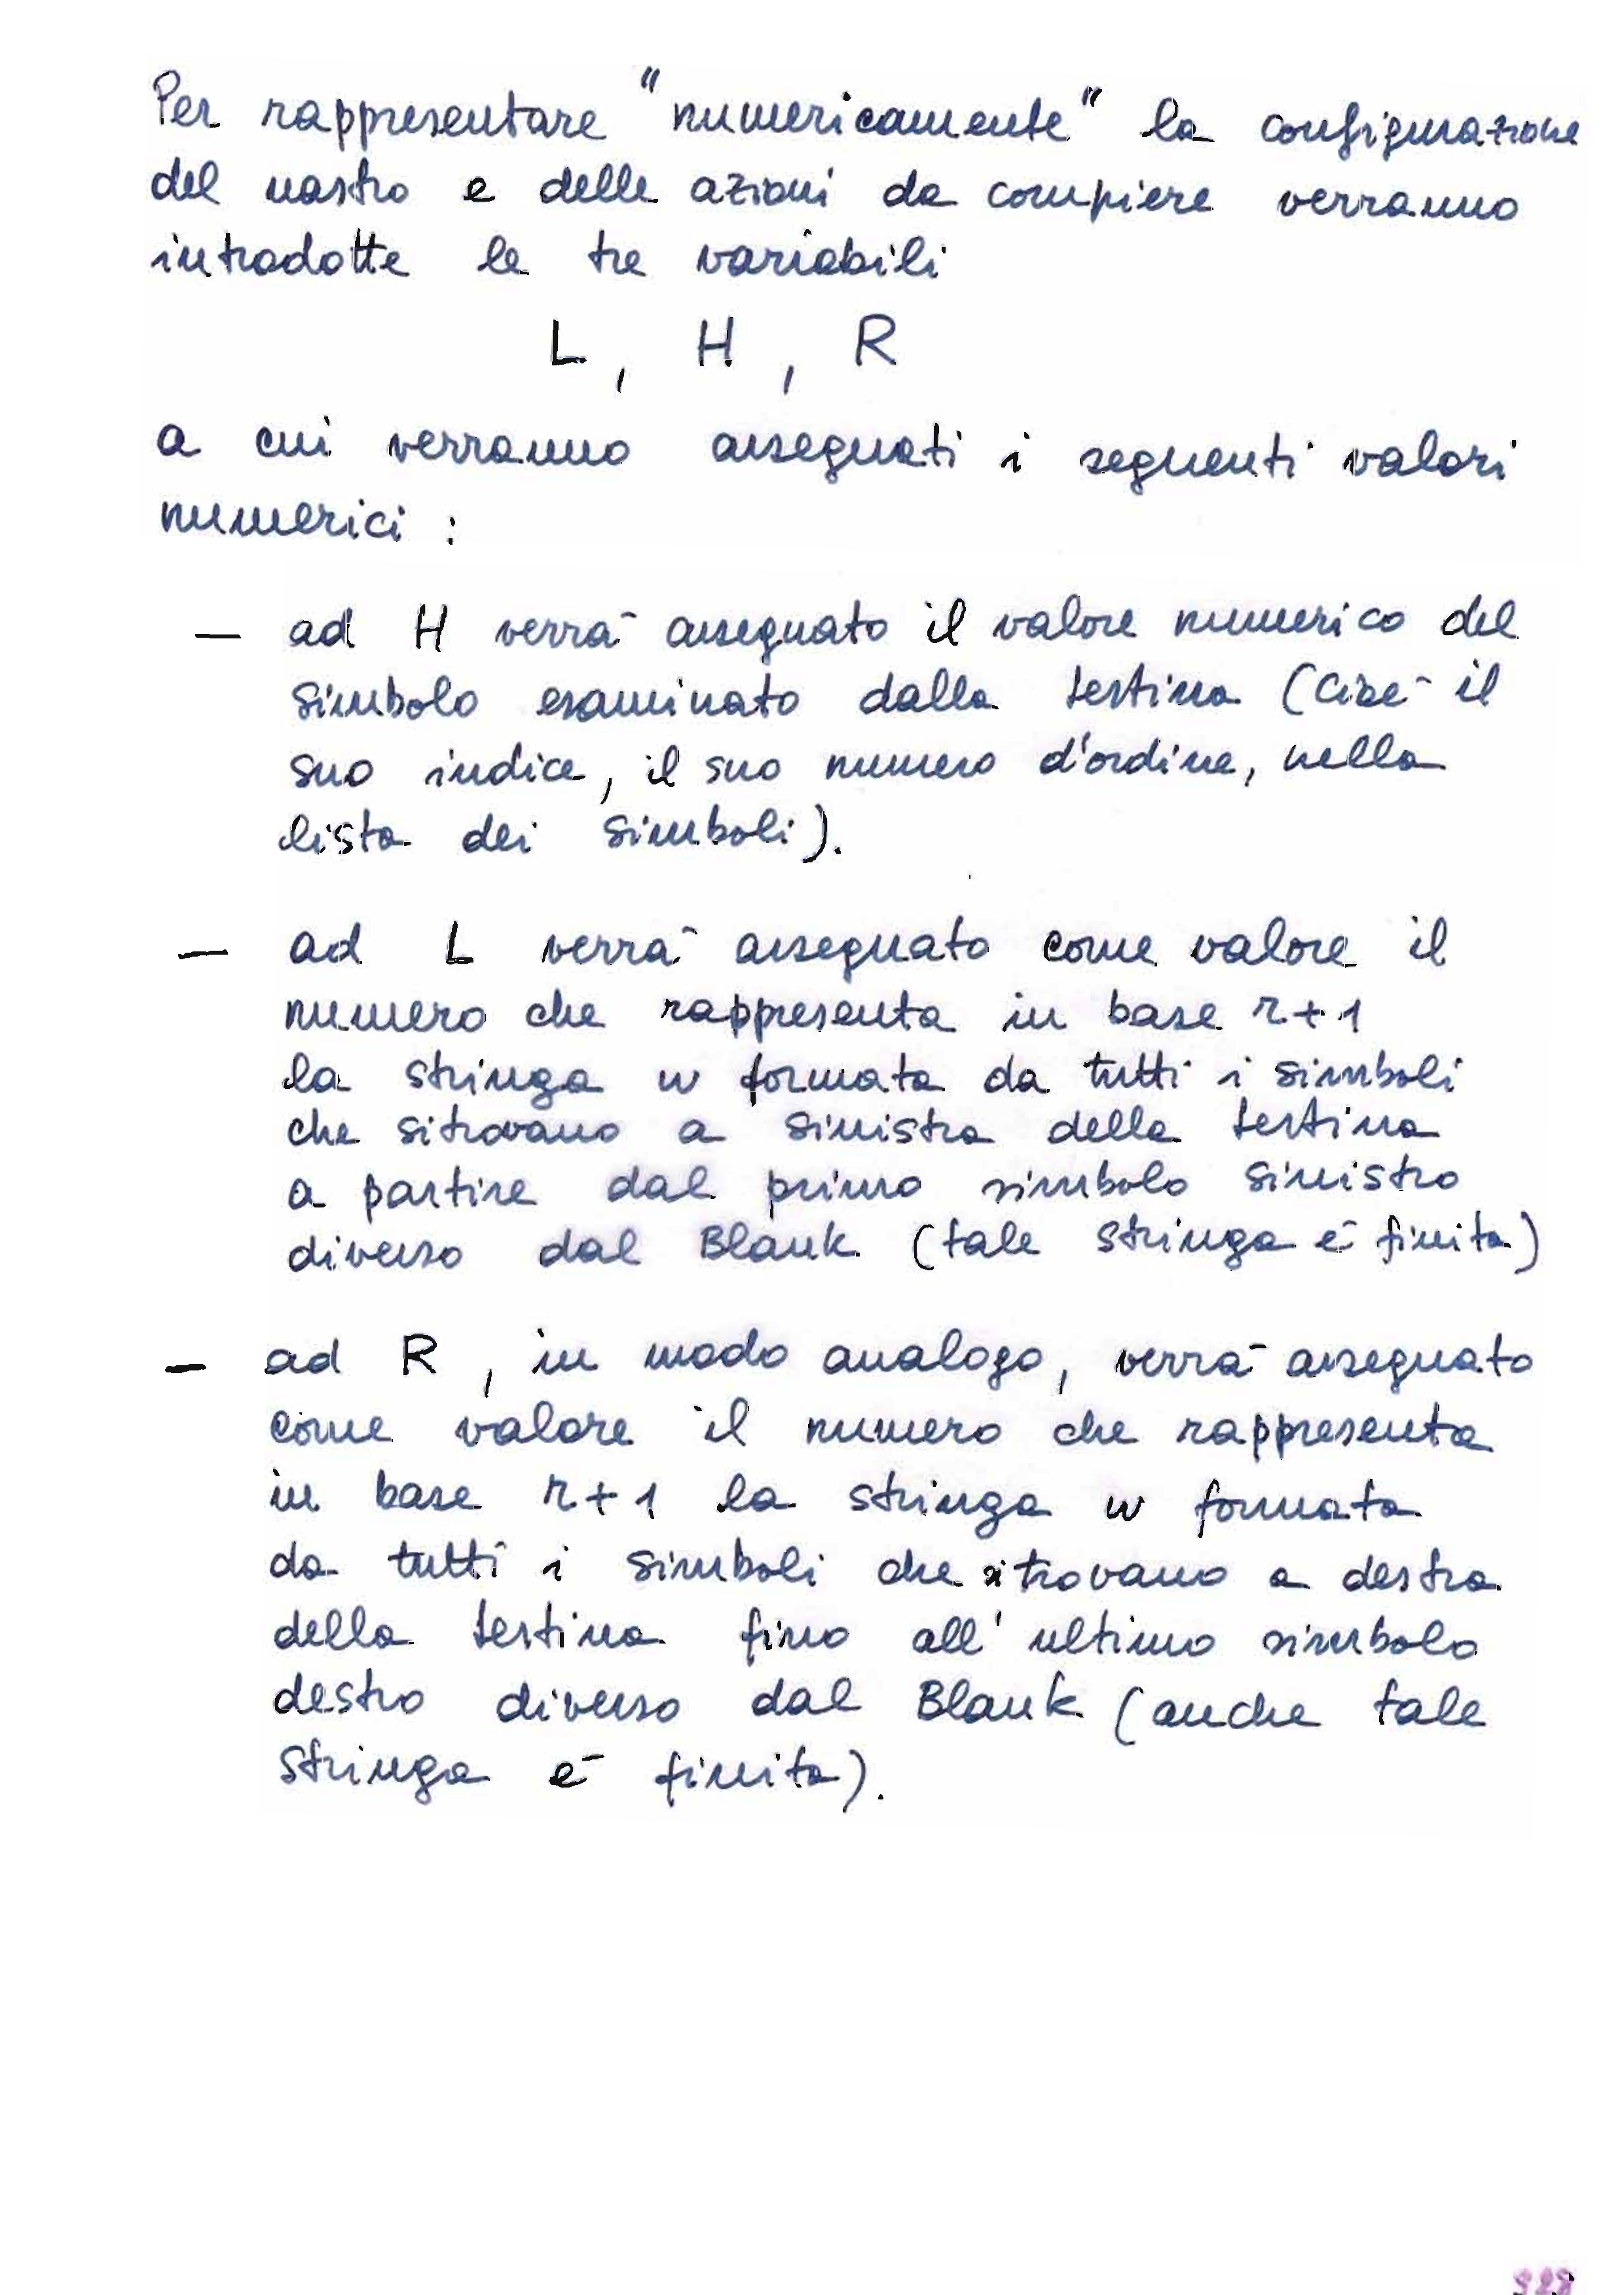 Per rappresentare "numericamente" la configurazione
del nastro e delle azioni da compiere verranno
introdotte le tre variabili
L , H , R
a cui verranno assegnati i seguenti valori
numerici :
— ad H verrà assegnato il valore numerico del
simbolo esaminato dalla testina (cioè il
suo indice, il suo numero d'ordine, nella
lista dei simboli).
— ad L verrà assegnato come valore il
numero che rappresenta in base r+1
la stringa w formata da tutti i simboli
che si trovano a sinistra della testina
a partire dal primo simbolo sinistro
diverso dal Blank (tale stringa è finita)
— ad R , in modo analogo, verrà assegnato
come valore il numero che rappresenta
in base r+1 la stringa w formata
da tutti i simboli che si trovano a destra
della testina fino all' ultimo simbolo
destro diverso dal Blank (anche tale
stringa è finita).